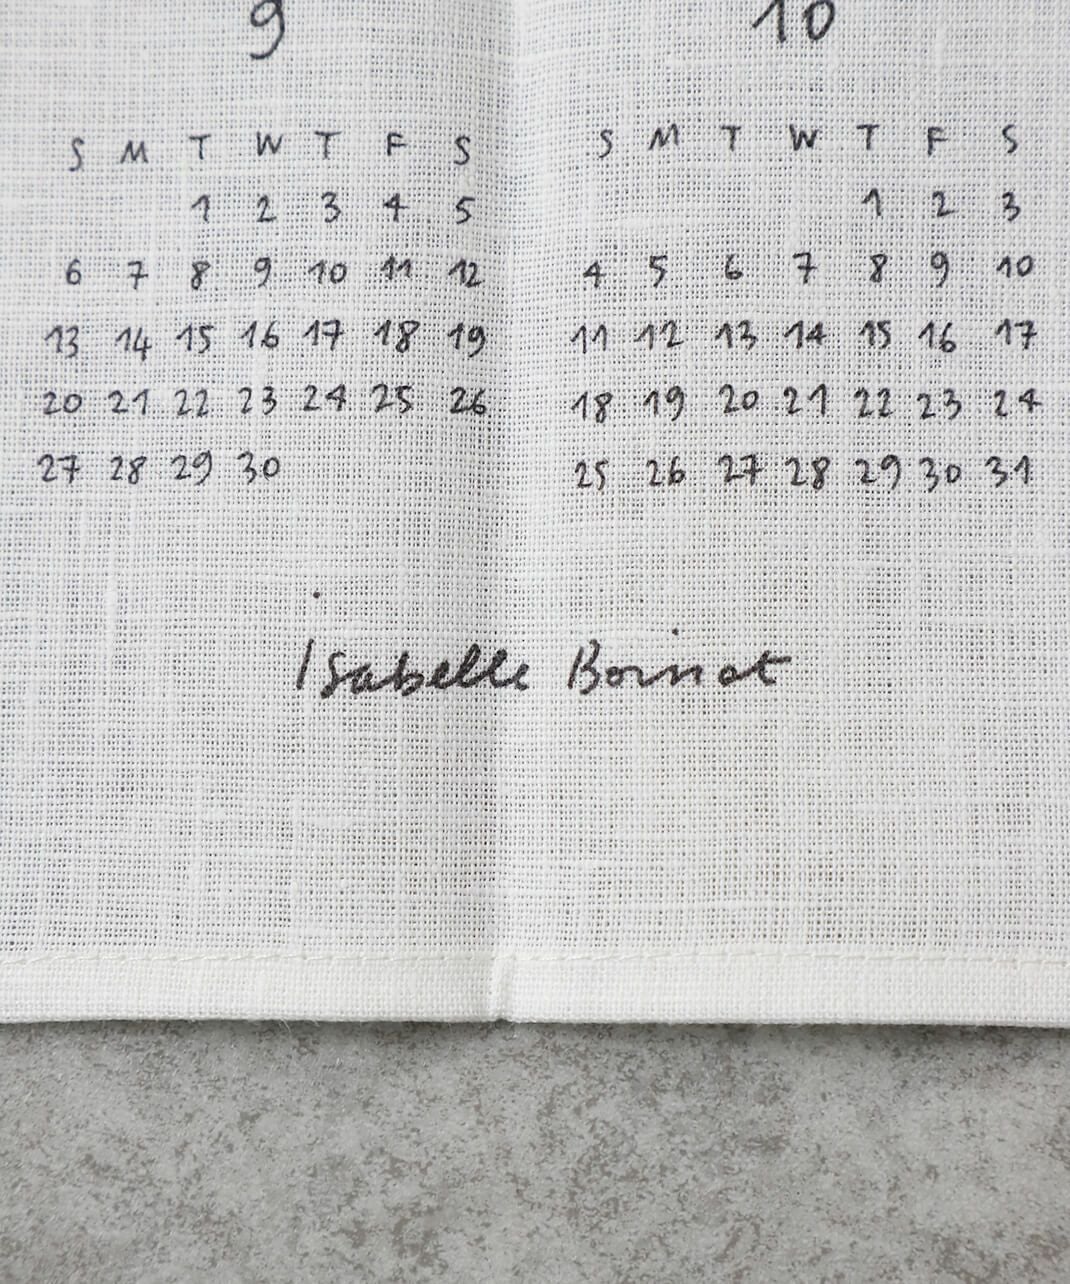 9 10
S M T W T F S S M T W T F S
1 2 3 4 5 1 2 3
6 7 8 9 10 11 12 4 5 6 7 8 9 10
13 14 15 16 17 18 19 11 12 13 14 15 16 17
20 21 22 23 24 25 26 18 19 20 21 22 23 24
27 28 29 30 25 26 27 28 29 30 31
Isabelle Boinot